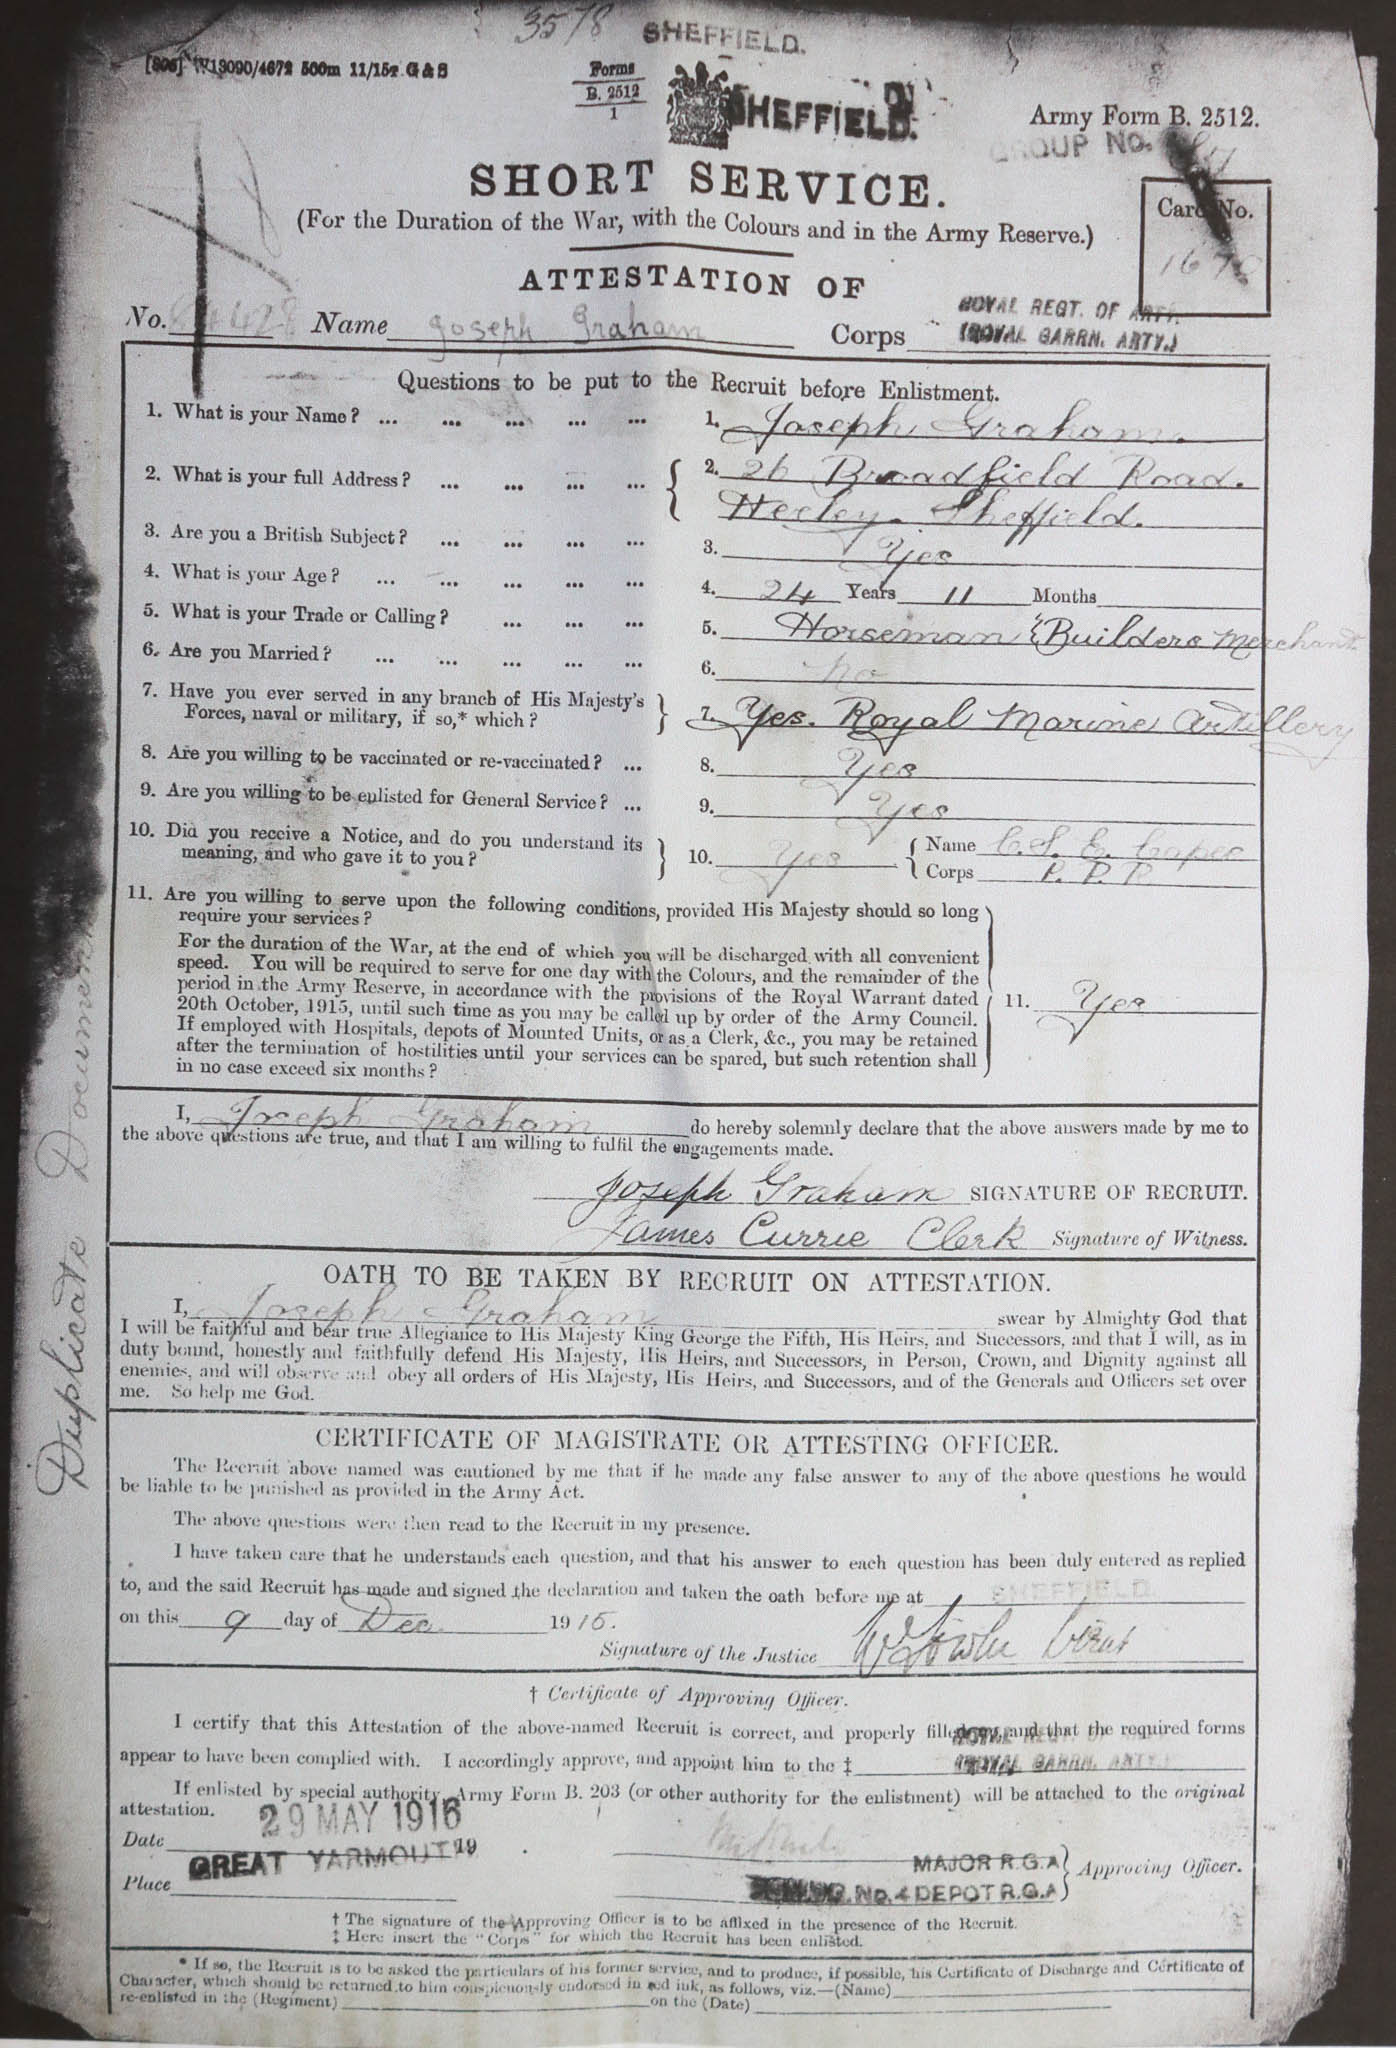 3578 SHEFFIELD.
W13090/4672 500m 11/15 G & S
Forms
B. 2512
1
SHEFFIELD.
Army Form B. 2512.
GROUP No.
SHORT SERVICE.
Card No.
(For the Duration of the War, with the Colours and in the Army Reserve.)
ATTESTATION OF
No. Name Joseph Graham Corps ROYAL REGT. OF ARTY.
(ROYAL GARRN. ARTY.)
Questions to be put to the Recruit before Enlistment.
1. What is your Name? ... ... ... ... ... 1. Joseph Graham.
2. What is your full Address? ... ... ... ... 2. 26 Broadfield Road.
Heeley. Sheffield.
3. Are you a British Subject? ... ... ... ... 3. Yes
4. What is your Age? ... ... ... ... ... 4. 24 Years 11 Months
5. What is your Trade or Calling? ... ... ... 5. Horseman Builders Merchant
6. Are you Married? ... ... ... ... ... 6. No
7. Have you ever served in any branch of His Majesty's
Forces, naval or military, if so,* which? 7. Yes. Royal Marine Artillery
8. Are you willing to be vaccinated or re-vaccinated? ... 8. Yes
9. Are you willing to be enlisted for General Service? ... 9. Yes
10. Did you receive a Notice, and do you understand its
meaning, and who gave it to you? 10. Yes Name
Corps
11. Are you willing to serve upon the following conditions, provided His Majesty should so long
require your services?
For the duration of the War, at the end of which you will be discharged with all convenient
speed. You will be required to serve for one day with the Colours, and the remainder of the
period in the Army Reserve, in accordance with the provisions of the Royal Warrant dated
20th October, 1915, until such time as you may be called up by order of the Army Council.
If employed with Hospitals, depots of Mounted Units, or as a Clerk, &c., you may be retained
after the termination of hostilities until your services can be spared, but such retention shall
in no case exceed six months?
11. Yes
I, Joseph Graham do hereby solemnly declare that the above answers made by me to
the above questions are true, and that I am willing to fulfil the engagements made.
Joseph Graham SIGNATURE OF RECRUIT.
James Currie Clerk Signature of Witness.
Duplicate Document
OATH TO BE TAKEN BY RECRUIT ON ATTESTATION.
I, Joseph Graham swear by Almighty God that
I will be faithful and bear true Allegiance to His Majesty King George the Fifth, His Heirs, and Successors, and that I will, as in
duty bound, honestly and faithfully defend His Majesty, His Heirs, and Successors, in Person, Crown, and Dignity against all
enemies, and will observe and obey all orders of His Majesty, His Heirs, and Successors, and of the Generals and Officers set over
me. So help me God.
CERTIFICATE OF MAGISTRATE OR ATTESTING OFFICER.
The Recruit above named was cautioned by me that if he made any false answer to any of the above questions he would
be liable to be punished as provided in the Army Act.
The above questions were then read to the Recruit in my presence.
I have taken care that he understands each question, and that his answer to each question has been duly entered as replied
to, and the said Recruit has made and signed the declaration and taken the oath before me at SHEFFIELD.
on this 9 day of Dec 1915.
Signature of the Justice
† Certificate of Approving Officer.
I certify that this Attestation of the above-named Recruit is correct, and properly filled up, and that the required forms
appear to have been complied with. I accordingly approve, and appoint him to the ‡ ROYAL REGT. OF
(ROYAL GARRN. ARTY.)
If enlisted by special authority, Army Form B. 203 (or other authority for the enlistment) will be attached to the original
attestation.
Date 29 MAY 1916 19
Place GREAT YARMOUTH
MAJOR R.G.A
No. 4 DEPOT R.G.A
Approving Officer.
† The signature of the Approving Officer is to be affixed in the presence of the Recruit.
‡ Here insert the "Corps" for which the Recruit has been enlisted.
* If so, the Recruit is to be asked the particulars of his former service, and to produce, if possible, his Certificate of Discharge and Certificate of
Character, which should be returned to him conspicuously endorsed in red ink, as follows, viz.—(Name)
re-enlisted in the (Regiment) on the (Date)